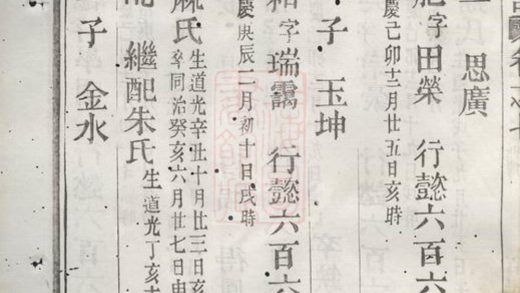 思廣
字田榮 行懿六百六
慶己卯十二月廿五日亥時
子 玉坤
字瑞靄 行懿六百六
慶庚辰二月初十日戌時
氏 生道光辛丑十月廿三日亥
卒同治癸亥六月廿七日申
繼配朱氏 生道光丁亥
子 金水